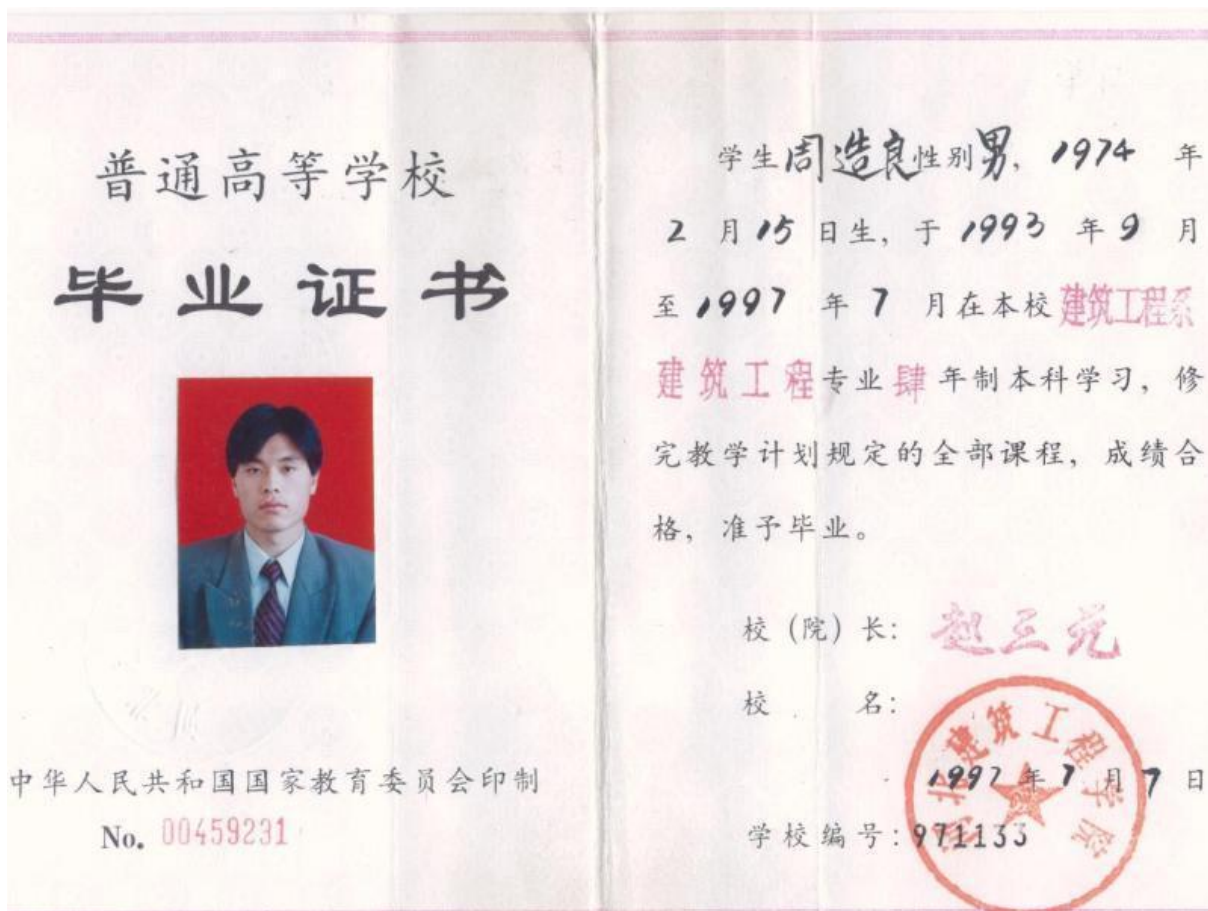 普通高等学校
毕业证书
中华人民共和国国家教育委员会印制
No. 00459231
学生周造良性别男, 1974 年
2 月 15 日生, 于 1993 年 9 月
至 1997 年 7 月在本校 建筑工程系
建筑工程专业肆年制本科学习, 修
完教学计划规定的全部课程, 成绩合
格, 准予毕业。
校 (院) 长: 赵三元
校 名:
建筑工程学院
1997 年 7 月 7 日
学校编号: 971133